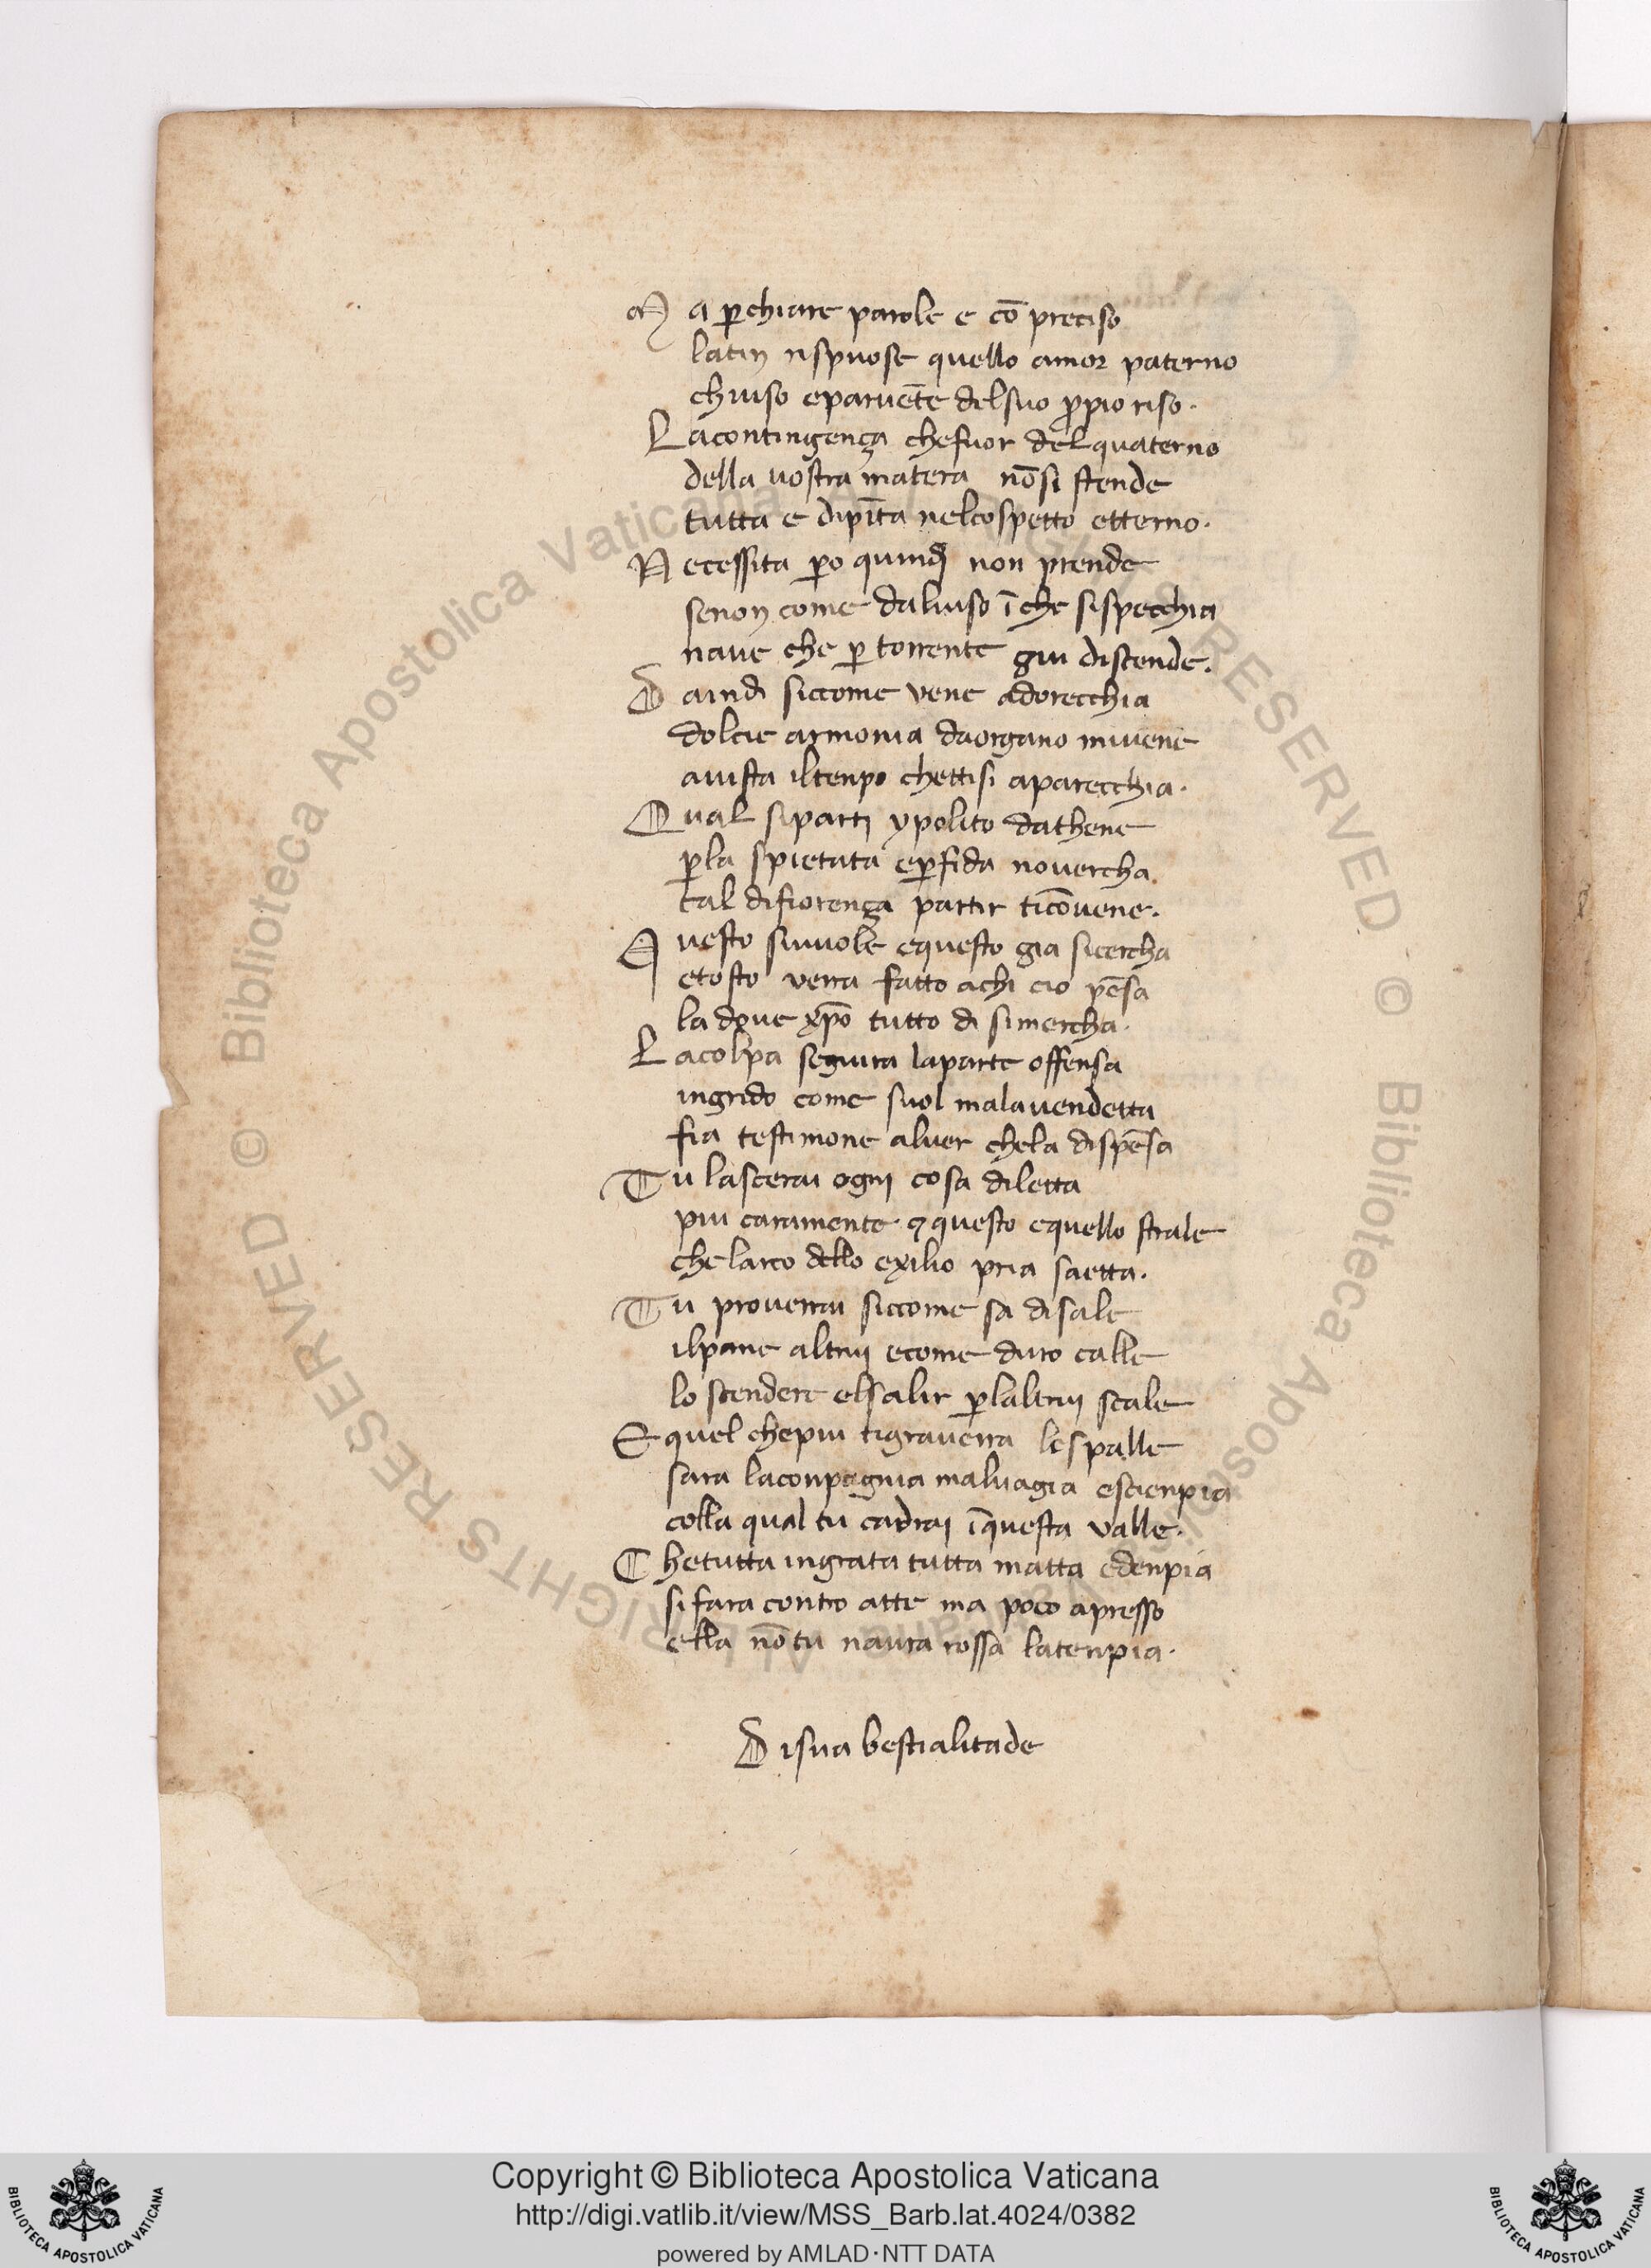 Ma ꝑchiare parole e cō preciso
latin rispuose quello amor paterno
chiuso eparuēte delsuo ꝓpio riso.
Lacontingença chefuor del quaterno
della uostra matera nōsi stende
tutta e dipīta nelcospetto etterno.
Necessita ꝑo quindi non prende
senon come daluiso īche sispecchia
naue che ꝑ torrente giu discende.
Daindi siccome vene adorecchia
dolcie armonia daorgano miuene
auista iltenpo chettisi aparecchia.
Qual siparti ypolito dathene
ꝑla spietata eꝑfida nouercha
tal difiorença partir ticōuene.
Questo siuuole equesto gia sicercha
etosto verra fatto achi cio pēsa
la doue xp̄o tutto di simercha.
Lacolpa seguira laparte offensa
ingrido come suol malauendetta
fia testimone aluer chela dispēsa
Tu lascerai ogni cosa diletta
piu caramente ⁊questo equello strale
che larco dello exilio pria saetta.
Tu prouerrai siccome sa disale
ilpane altrui ecome duro calle
lo scendere elsalir ꝑlaltrui scale
Equel chepiu tigrauerra lespalle
sara laconpagnia maluagia escienpia
colla qual tu cadrai īquesta valle.
Chetutta ingrata tutta matta edenpia
sifara contro atte ma poco apresso
ella nōtu naura rossa latenpia.
Disua bestialitade
Copyright © Biblioteca Apostolica Vaticana
http://digi.vatlib.it/view/MSS_Barb.lat.4024/0382
powered by AMLAD·NTT DATA
BIBLIOTECA APOSTOLICA VATICANA
BIBLIOTECA APOSTOLICA VATICANA
© Biblioteca Apostolica Vaticana ALL RIGHTS RESERVED © Biblioteca Apostolica Vaticana ALL RIGHTS RESERVED